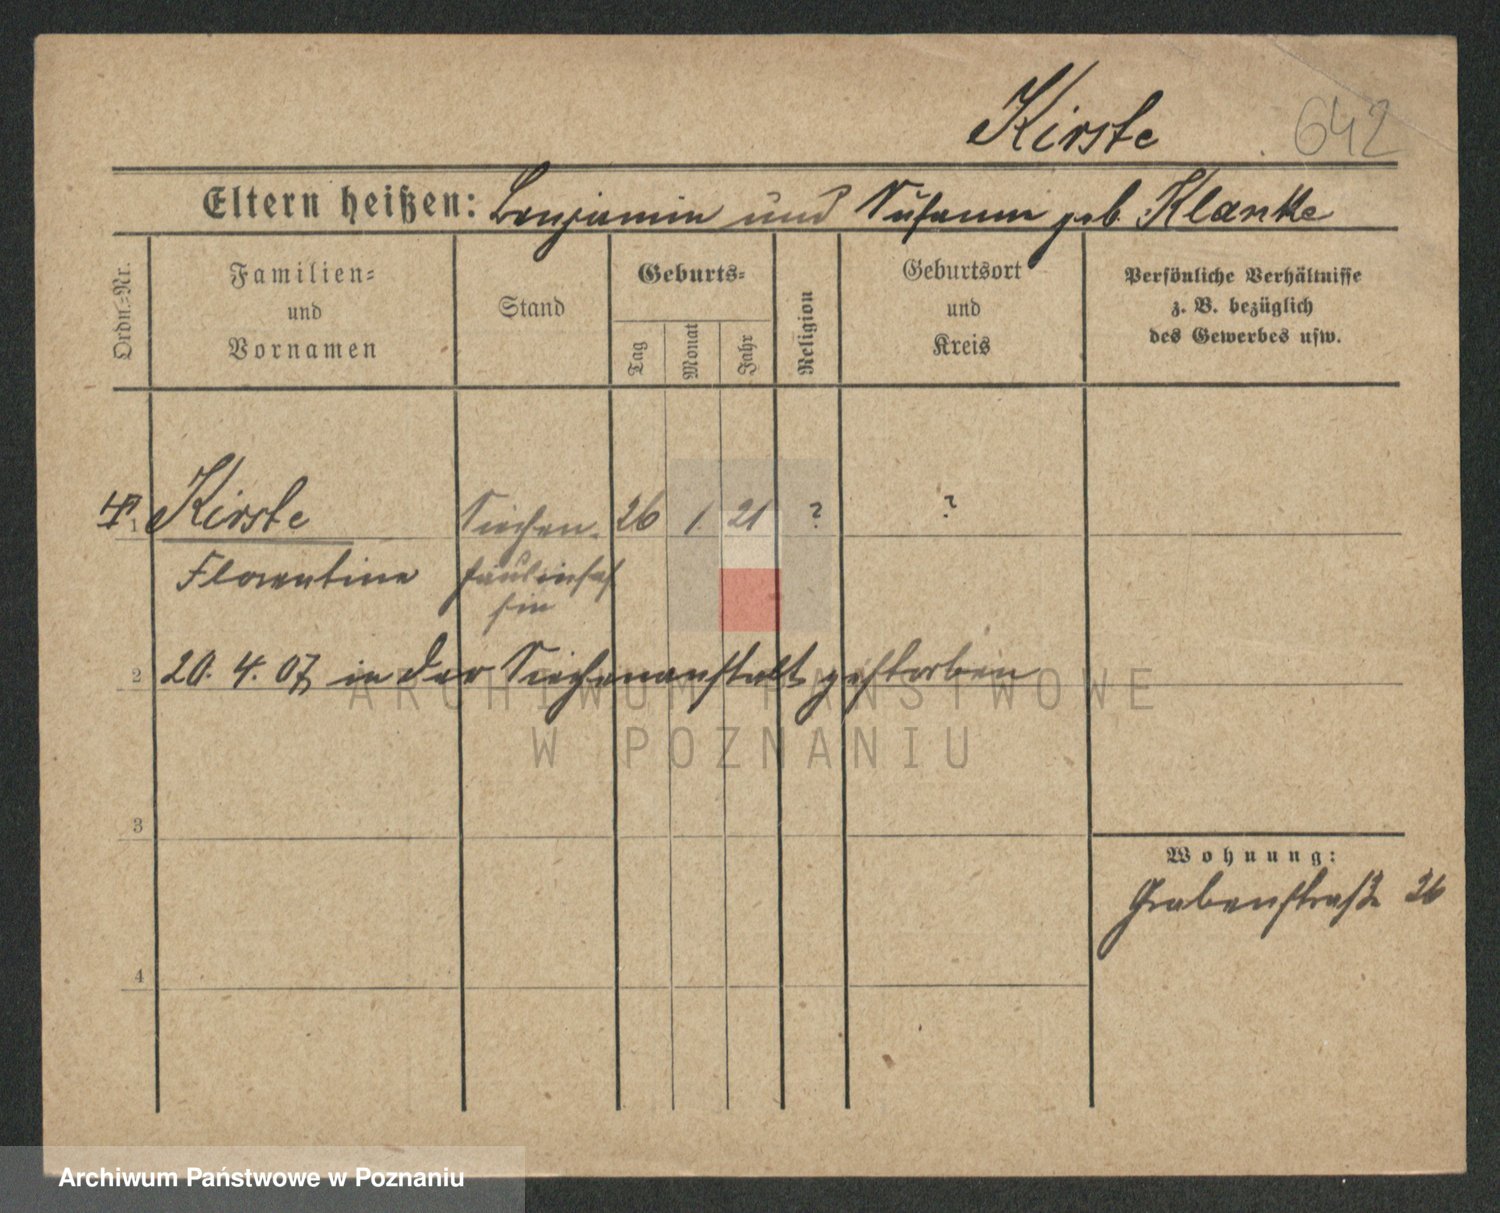 Kirste 642
Eltern heißen: Benjamin und Susanne geb. Klanke
Ordn.=Nr.
Familien=
und
Vornamen
Stand
Geburts=
Tag
Monat
Jahr
Religion
Geburtsort
und
Kreis
Persönliche Verhältnisse
z. B. bezüglich
des Gewerbes usw.
1 Kirste Siechen- 26 1. 21 ? ?
Florentine häuslerin
2 20. 4. 07 in der Siechenanstalt gestorben
ARCHIWUM PAŃSTWOWE
W POZNANIU
3
Wohnung:
Grabenstraße 26
4
Archiwum Państwowe w Poznaniu